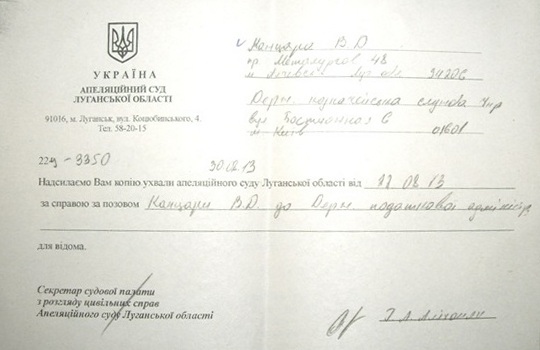 УКРАЇНА
АПЕЛЯЦІЙНИЙ СУД
ЛУГАНСЬКОЇ ОБЛАСТІ
91016, м. Луганськ, вул. Коцюбинського, 4.
Тел. 58-20-15
Канцара В.Д
пр Металургов 48
м Алчевськ Луг обл
Держ казначейська служба Укр
вул Бастионная 6
м Київ 01601
22ц-3350
30.08.13
Надсилаємо Вам копію ухвали апеляційного суду Луганської області від 27 08 13
за справою за позовом Канцари В.Д. до Держ податкової адміністр
для відома.
Секретар судової палати
з розгляду цивільних справ
Апеляційного суду Луганської області